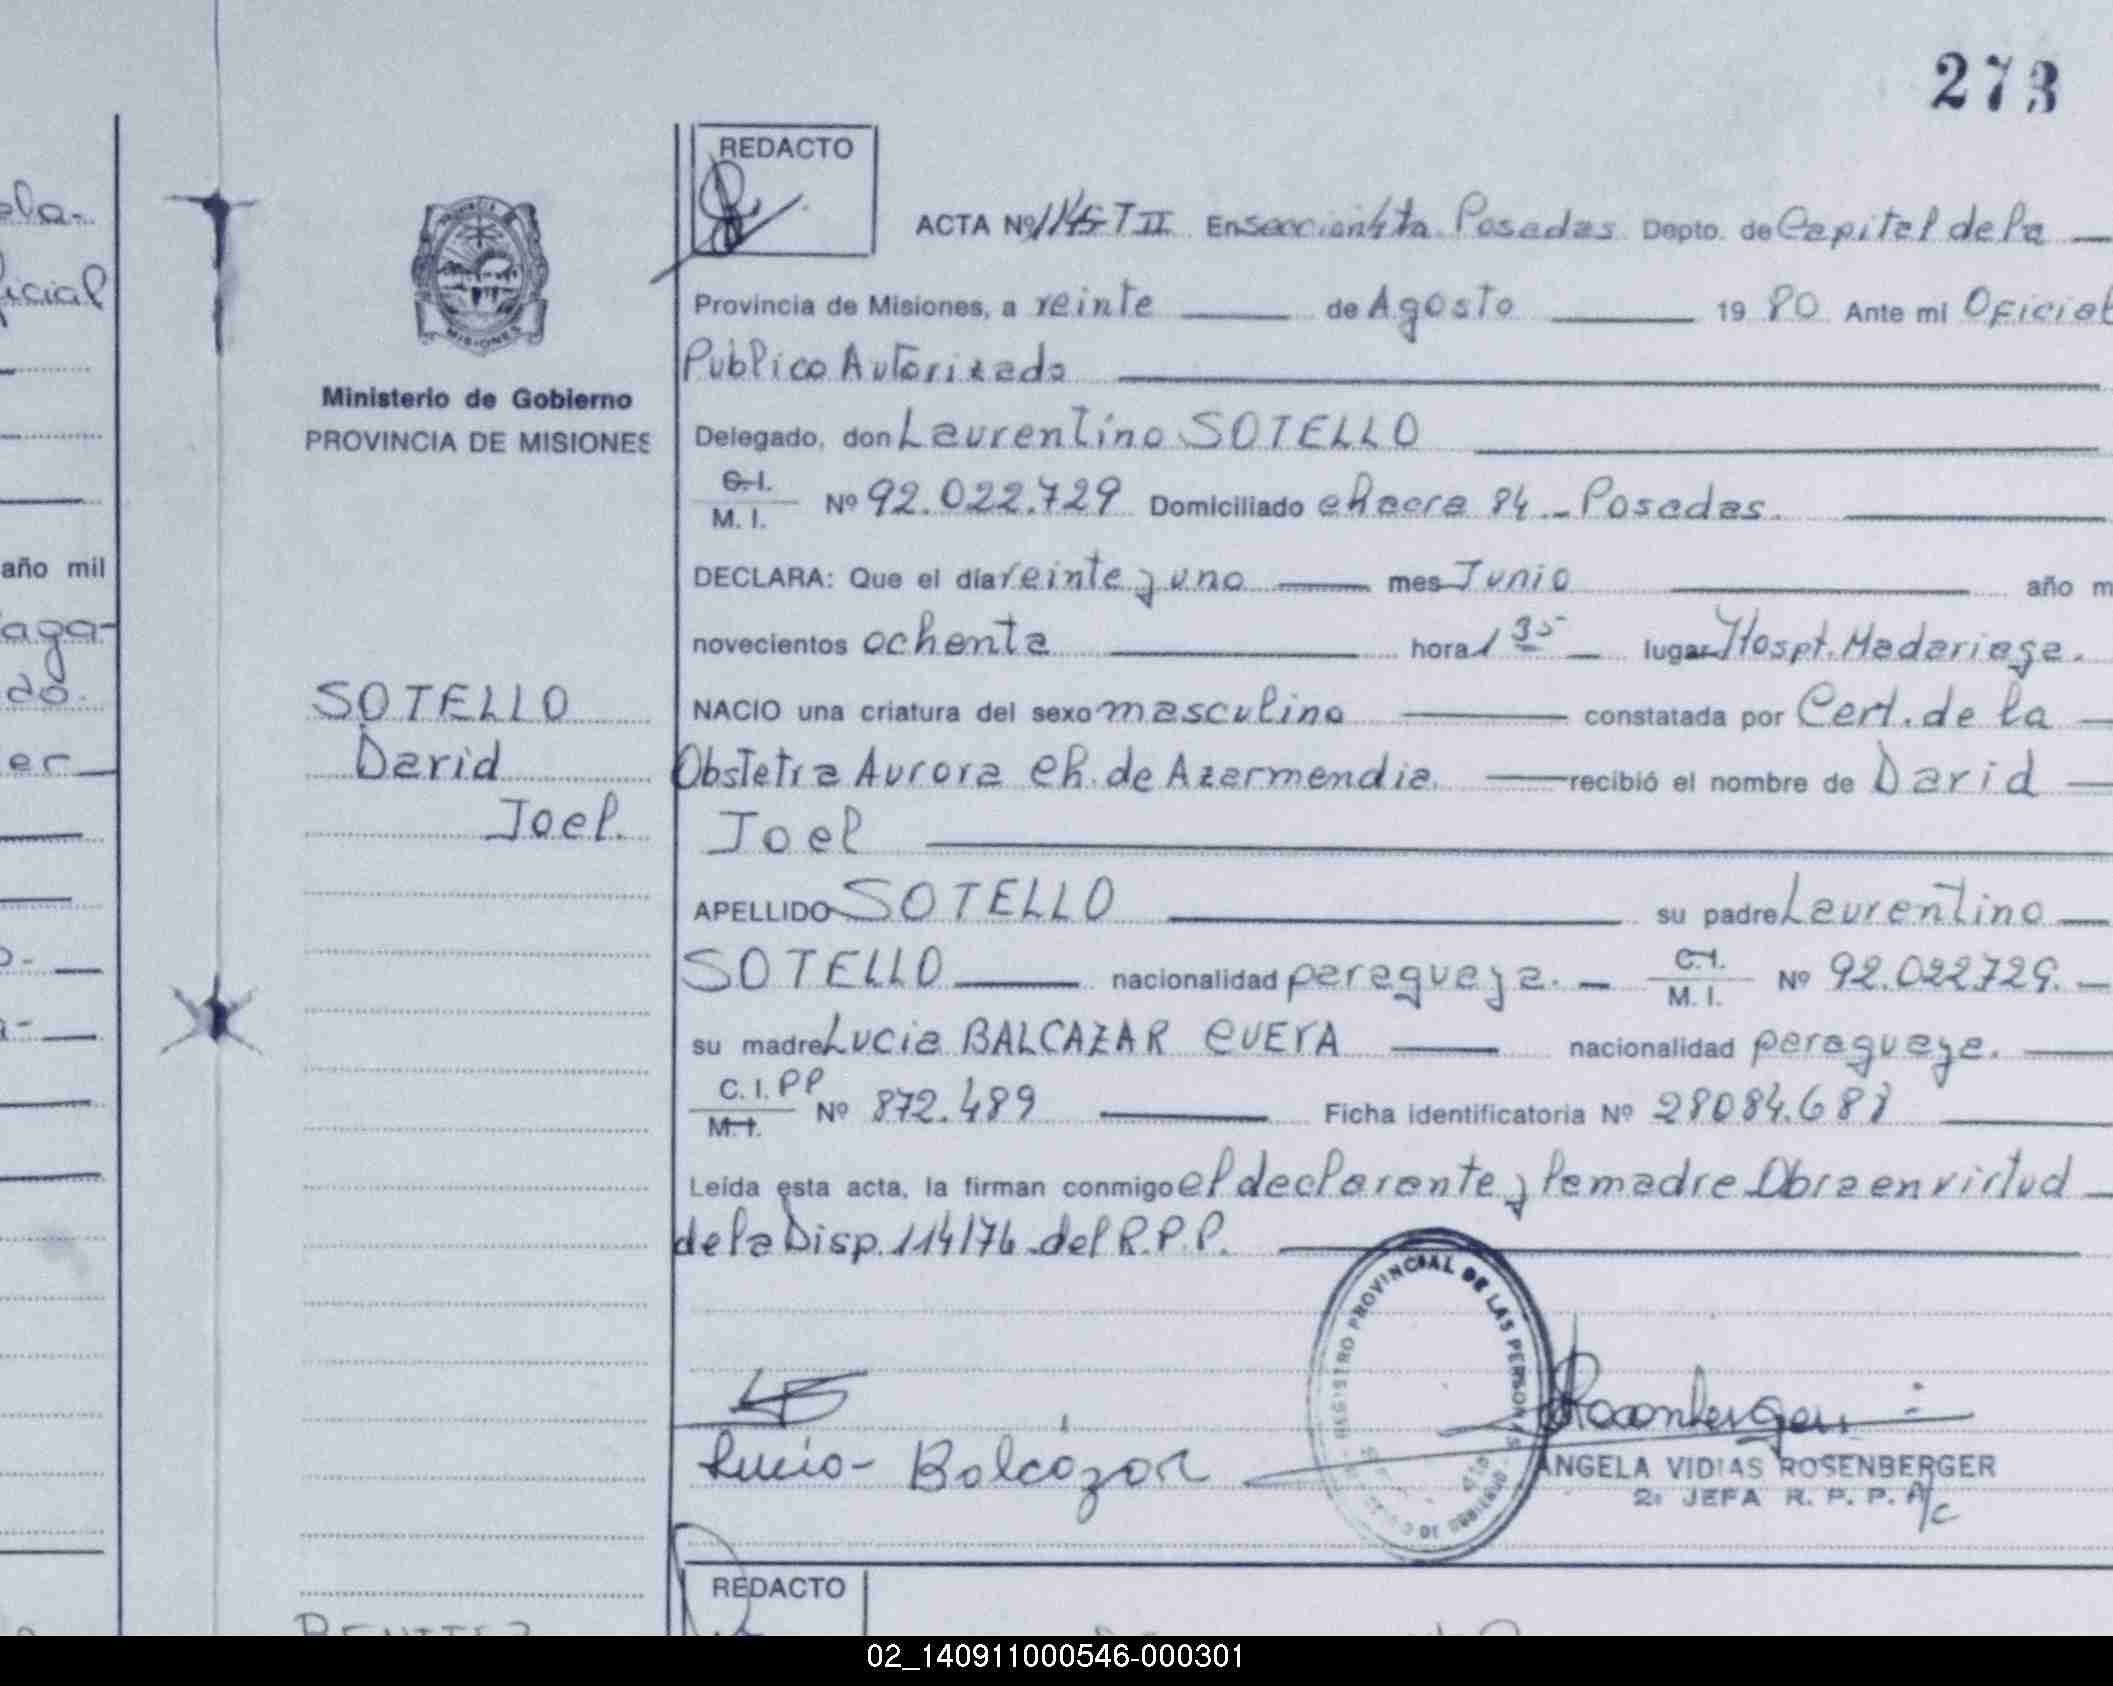 273
REDACTO
ACTA Nº 1145 T II En seccion 4ta Posadas Depto. de Capital de la
Provincia de Misiones, a veinte de Agosto 1980 Ante mi Oficial
Publico Autorizado
Delegado, don Laurentino SOTELLO
C. I.
M. I. Nº 92.022.729 Domiciliado chacra 84 - Posadas.
DECLARA: Que el día veinte y uno mes Junio año m
novecientos ochenta hora 1 35 lugar Hospt. Madariaga.
NACIO una criatura del sexo masculino constatada por Cert. de la
Obstetra Aurora Ch. de Azarmendia. recibió el nombre de David
Joel
APELLIDO SOTELLO su padre Laurentino
SOTELLO nacionalidad paraguaya. - C. I.
M. I. Nº 92.022729. -
su madre Lucia BALCAZAR CUEVA nacionalidad paraguaya.
C. I. PP
M. I. Nº 872.489 Ficha identificatoria Nº 28084.688
Leída esta acta, la firman conmigo el declarante y la madre Obra en virtud
de la Disp. 114/76 del R.P.P.
Lucia - Balcázar
REGISTRO PROVINCIAL DE LAS PERSONAS
ANGELA VIDIAS ROSENBERGER
2ª JEFA R. P. P. A/c
REDACTO
PROVINCIA DE
MISIONES
Ministerio de Gobierno
PROVINCIA DE MISIONES
SOTELLO
David
Joel.
BENITEZ
ela-
ficial
año mil
aga-
do.
er
02_140911000546-000301